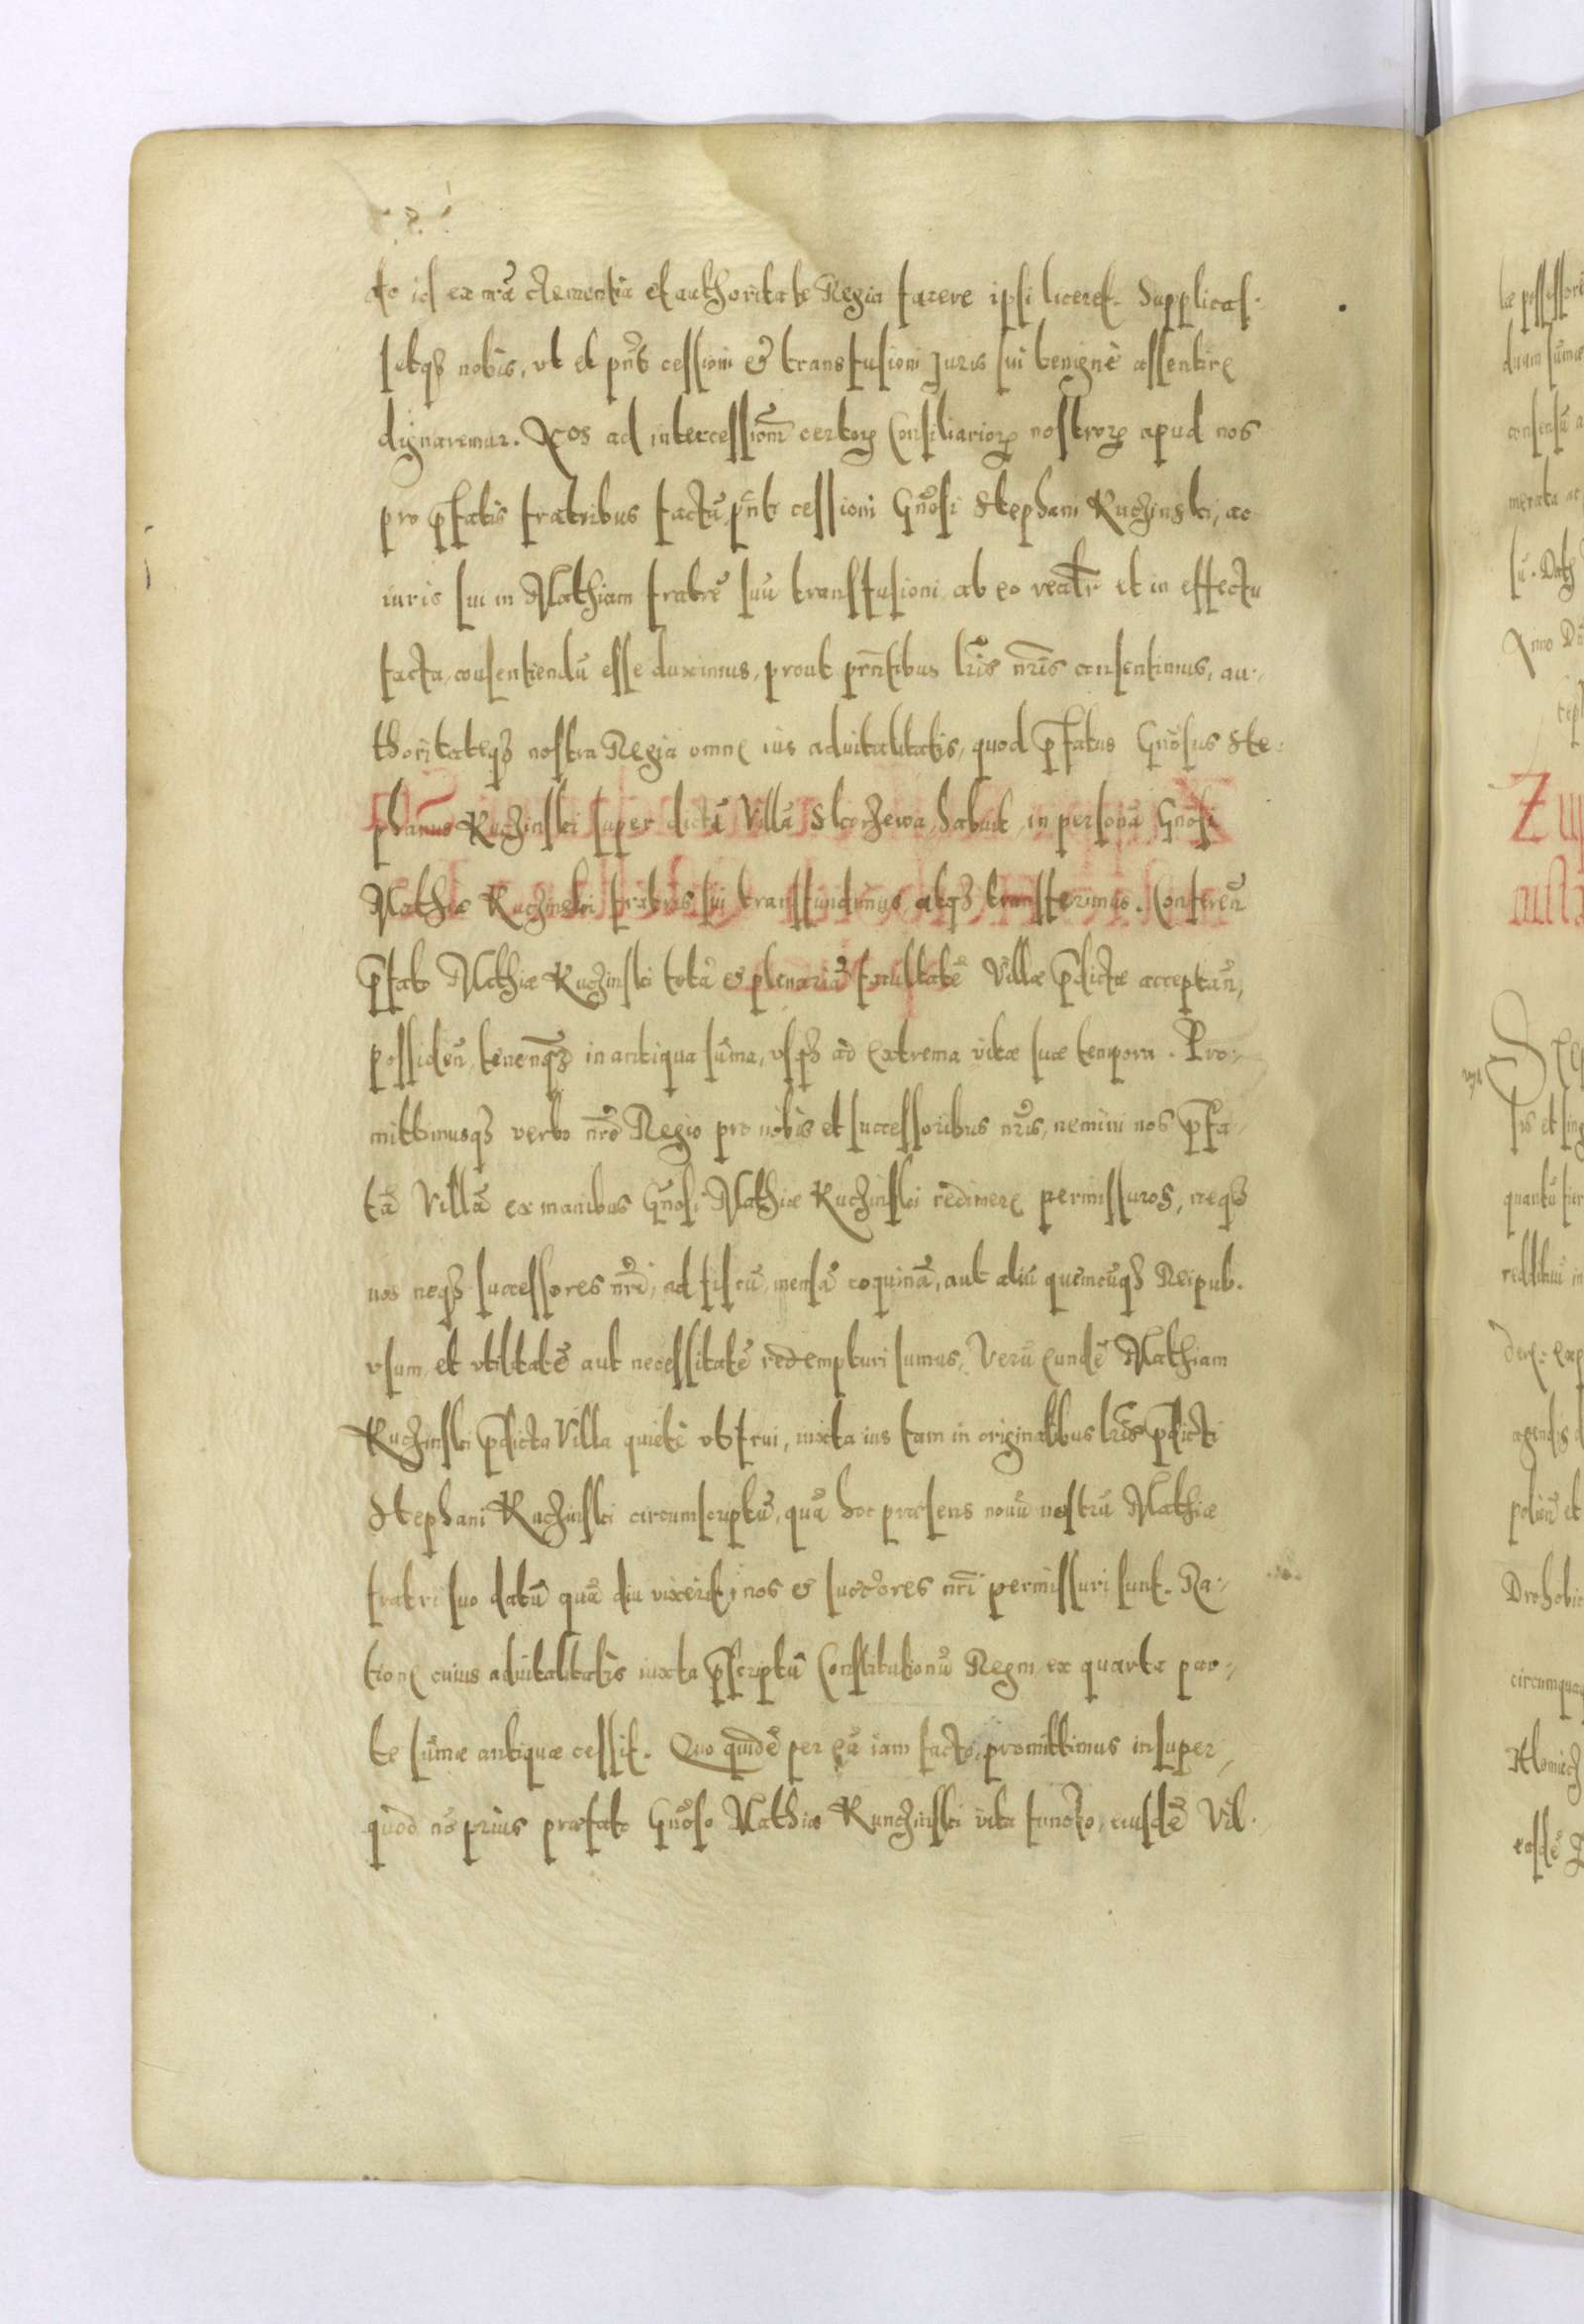 do id ex nrã clementia et authoritate Regia facere ipsi liceret. Supplicas-
setqȝ nobis, vt et pñt cessioni & transfusioni Juris sui benignè assentire
dignaremur. Nos ad intercessionẽ certorꝝ Consiliariorꝝ nostrorꝝ apud nos
pro p̄fatis fratribus factã, pñt cessioni Gñosi Stephani Ruchinski, ac
iuris sui in Mathiam fratrẽ suũ transfusioni ab eo realr̃ et in effectu
facta, consentiendũ esse duximus, prout pñtibus lr̃is nr̃is consentimus, au-
thoritateqȝ nostra Regia omne ius aduitalitatis, quod p̄fatus Gñosus Ste-
phanus Ruchinski super dictã Villã Skorzewa habuit, in personã Gñosi
Mathiæ Ruchinski fratris sui transfundimus atqȝ transferimus. Conferẽn
p̄fato Mathiæ Ruchinski totã & plenariã facultatẽ Villæ p̄dictæ acceptan̄,
possiden̄, tenenqȝ in antiqua sũma, vsqȝ ad extrema vitæ suæ tempora. Pro-
mittimusqȝ verbo nr̃o Regio pro nobis et successoribus nr̃is, nemini nos p̄fa-
tã Villã ex manibus Gñosi Mathiæ Ruchinski redimere permissuros, neqȝ
nos neqȝ successores nr̃i, ad fiscũ, mensã coquinã, aut aliũ quẽmcũqȝ Reipub.
vsum, et vtilitatẽ aut necessitatẽ redempturi sumus, Verũ eundẽ Mathiam
Ruchinski p̄dicta Villa quietè vti frui, iuxta ius tam in originalibus lr̃is p̄dicti
Stephani Ruchinski circumscriptũ, quã hoc præsens nouũ nostrũ Mathiæ
fratri suo datũ quã diu vixerit, nos & succ̃ores nr̃i permissuri sunt. Ra-
tione cuius aduitalitatis iuxta p̄scriptũ Constitutionũ Regni ex quarta par-
te sũmæ antiquæ cessit. Quo quidẽ per eũ iam facto, promittimus insuper,
quod nõ prius præfato Gñoso Mathia Runchinski vita functo, eiusdẽ Vil-